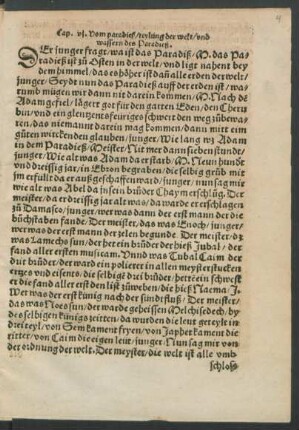 Cap. vj. Vom paradieß/teylung der welt/vnd
wassern des Paradieß.
DEr junger fragt/wa ist das Paradiß/M. das Pa⸗
radieß ist zů Osten in der welt/vnd ligt nahent bey
dem himmel/das es höher ist dañ alle erden der welt/
junger/Seyt nun das Paradieß auff der erden ist/wa
rumb mügen wir dann nit darein kommen/M. Nach dẽ
Adam gefiel/lägert got für den garten Eden/den Cheru
bin/vnd ein glenzents feüriges schwert den weg zůbewa⸗
ren/das niemant darein mag kommen/dann mitt eim
gůten wircken den glauben/junger/Wie lang wz Adam
in dem Paradieß/Meister/Nit mer dann siben stund/ze/
junger/Wie alt was Adam da er starb/M. Neün hundt
vnd dreissig jar/in Ebron begraben/die selbig grůb mit
jm erfült als er außgeschaffen ward/junger/nun sag mir
wie alt was Abel da jn sein brůder Chaym erschlůg/Der
meister/da er dreissig jar alt was/da ward er erschlagen
zů Damasco/junger/wer was dann der erst mann der die
bůchstaben fande/Der meister/das was Enoch/junger/
wer was der erst mann der zelen begunde/Der meister/dz
was Lamechs sun/der het ein brůder der hieß Jubal/der
fand aller ersten musicam. Vnnd was Tubal Caim der
drit brůder/der ward ein polierer in allen meysterstucken
ertzes vnd eisents/die selbige drei brůder/hette ein schwest
er die fand aller erst den list zůweben/die hieß Naema/J.
Wer was der erst künig nach der sündtfluß/Der meister/
das was Noes sun/der warde geheissen Melchisedech/by
des selbigen künigs zeitten/da wurden die leut geteylt in
drei teyl/von Sem kament fryen/von Japhet kament die
ritter/von Caim die eigen leut/junger/Nun sag mir von
der ordnung der welt. Der meyster/die welt ist alle vmb
schloss⸗